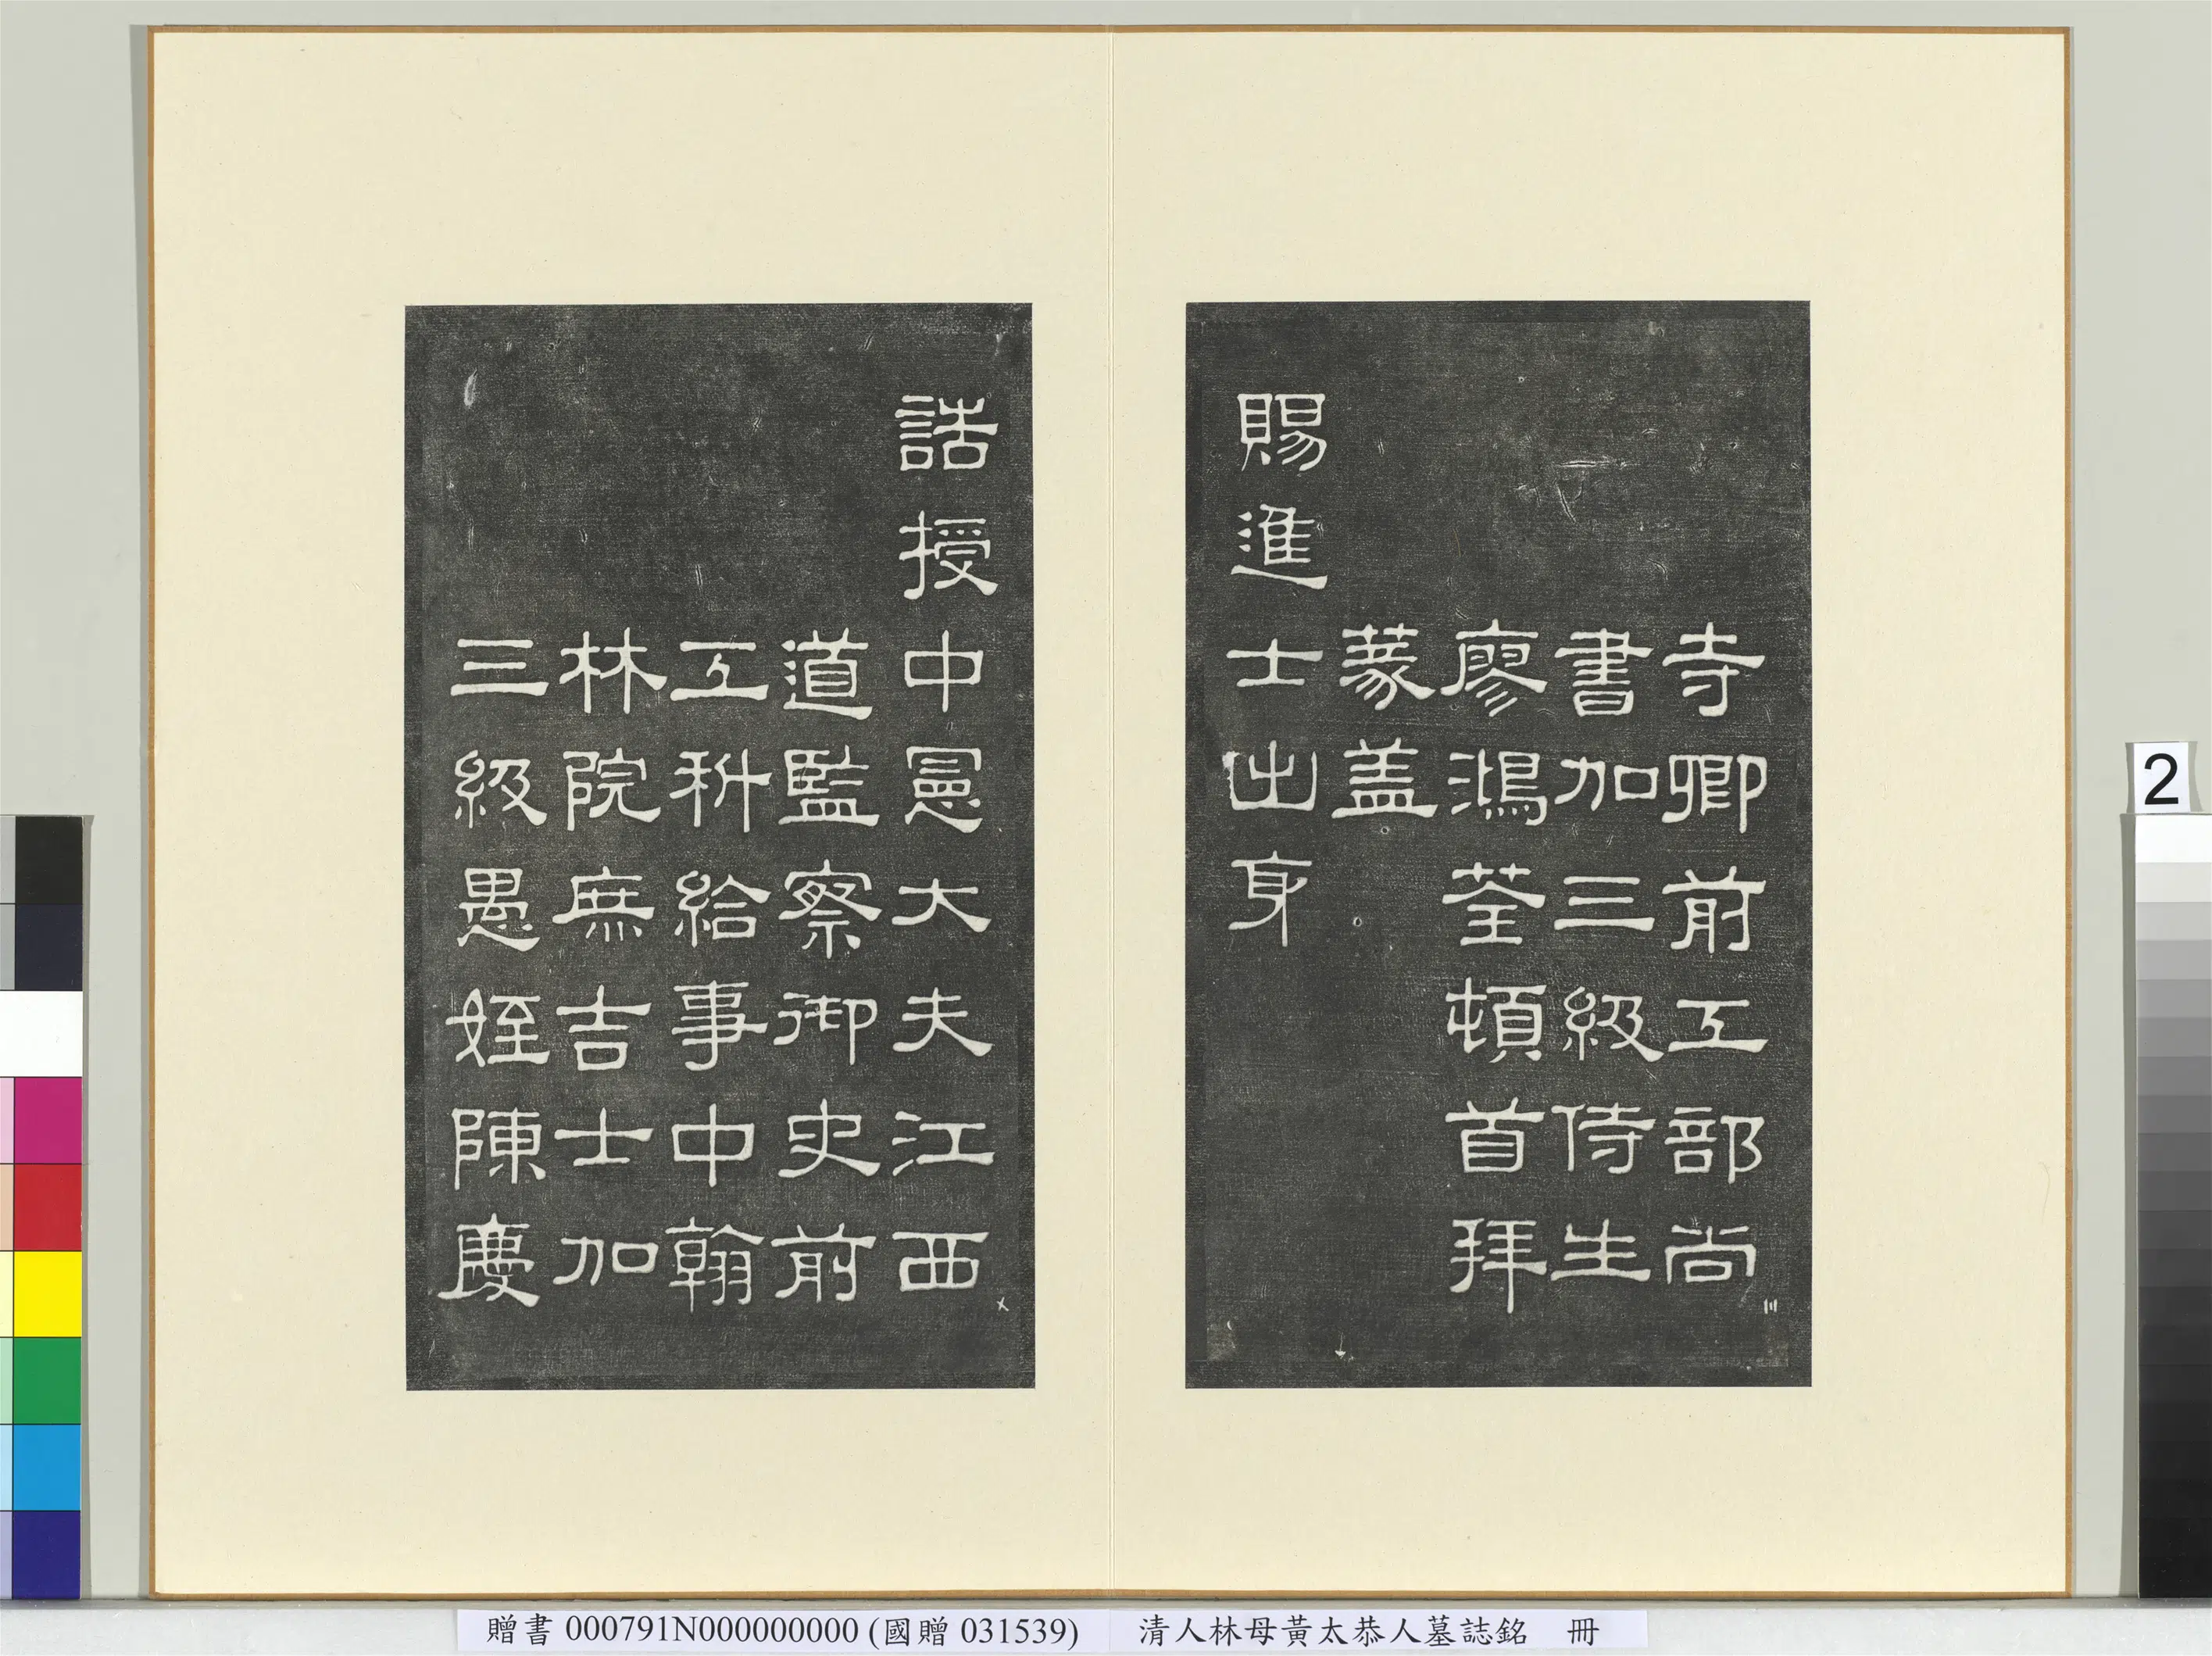 寺卿前工部尚
書加三級侍生
廖鴻荃頓首拜
篆盖
賜進士出身
誥授中憲大夫江西
道監察御史前
工科給事中翰
林院庶吉士加
三級愚姪陳慶
2
贈書 000791N000000000 (國贈 031539) 清人林母黃太恭人墓誌銘 冊